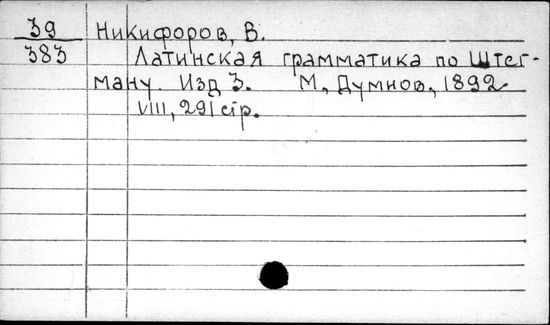 39
383
Никифоров, В.
Латинская грамматика по Штег-
ману. Изд 3. М, Думнов, 1892
VIII, 291 стр.